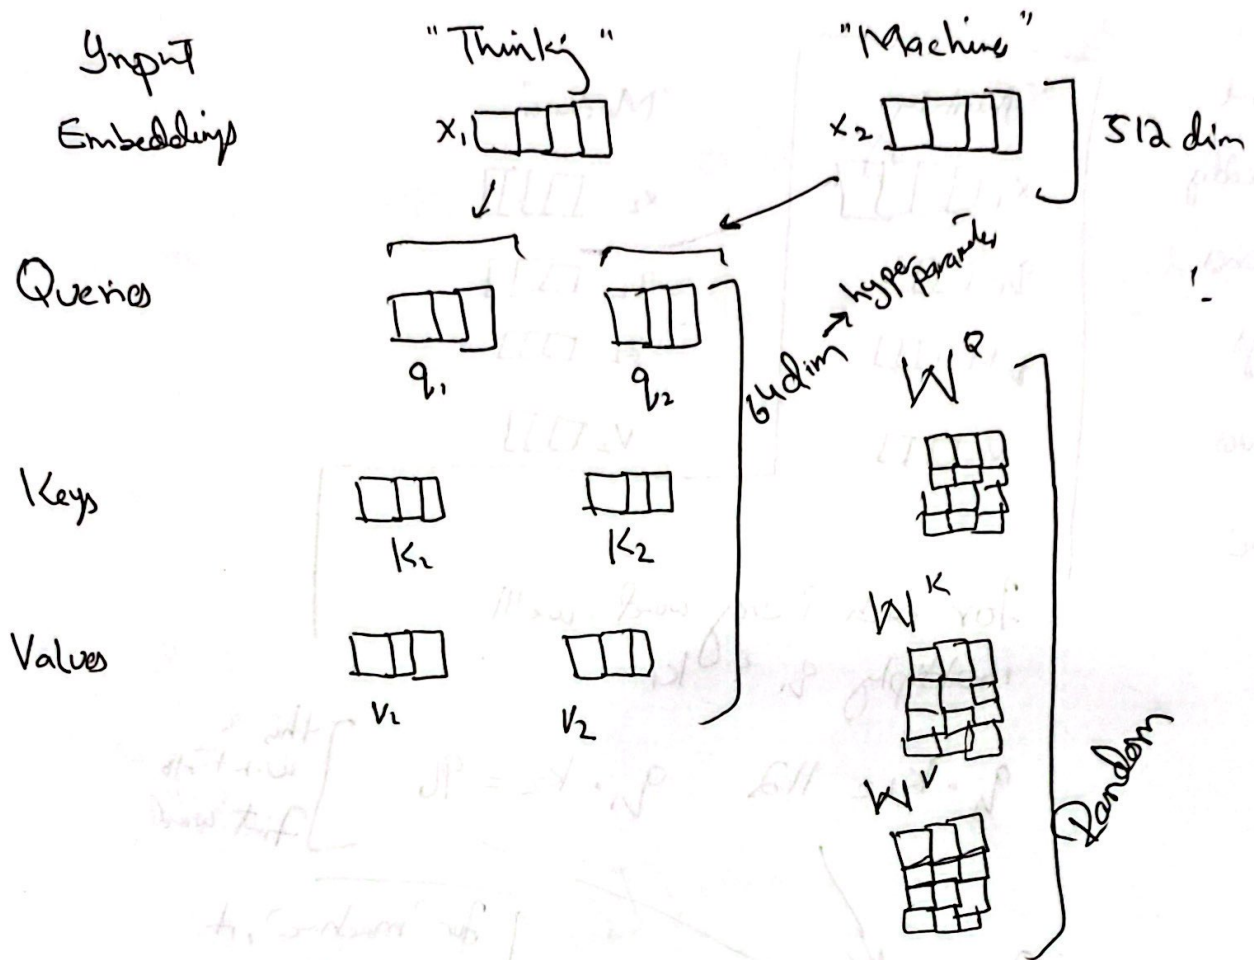 Input "Thinkig" "Machine"
Embeddings x₁ x₂ 512 dim
Queries
q₁ q₂
64 dim → hyper parameter
Keys
K₁ K₂
Values
V₁ V₂
W^Q
W^K
W^V
Random